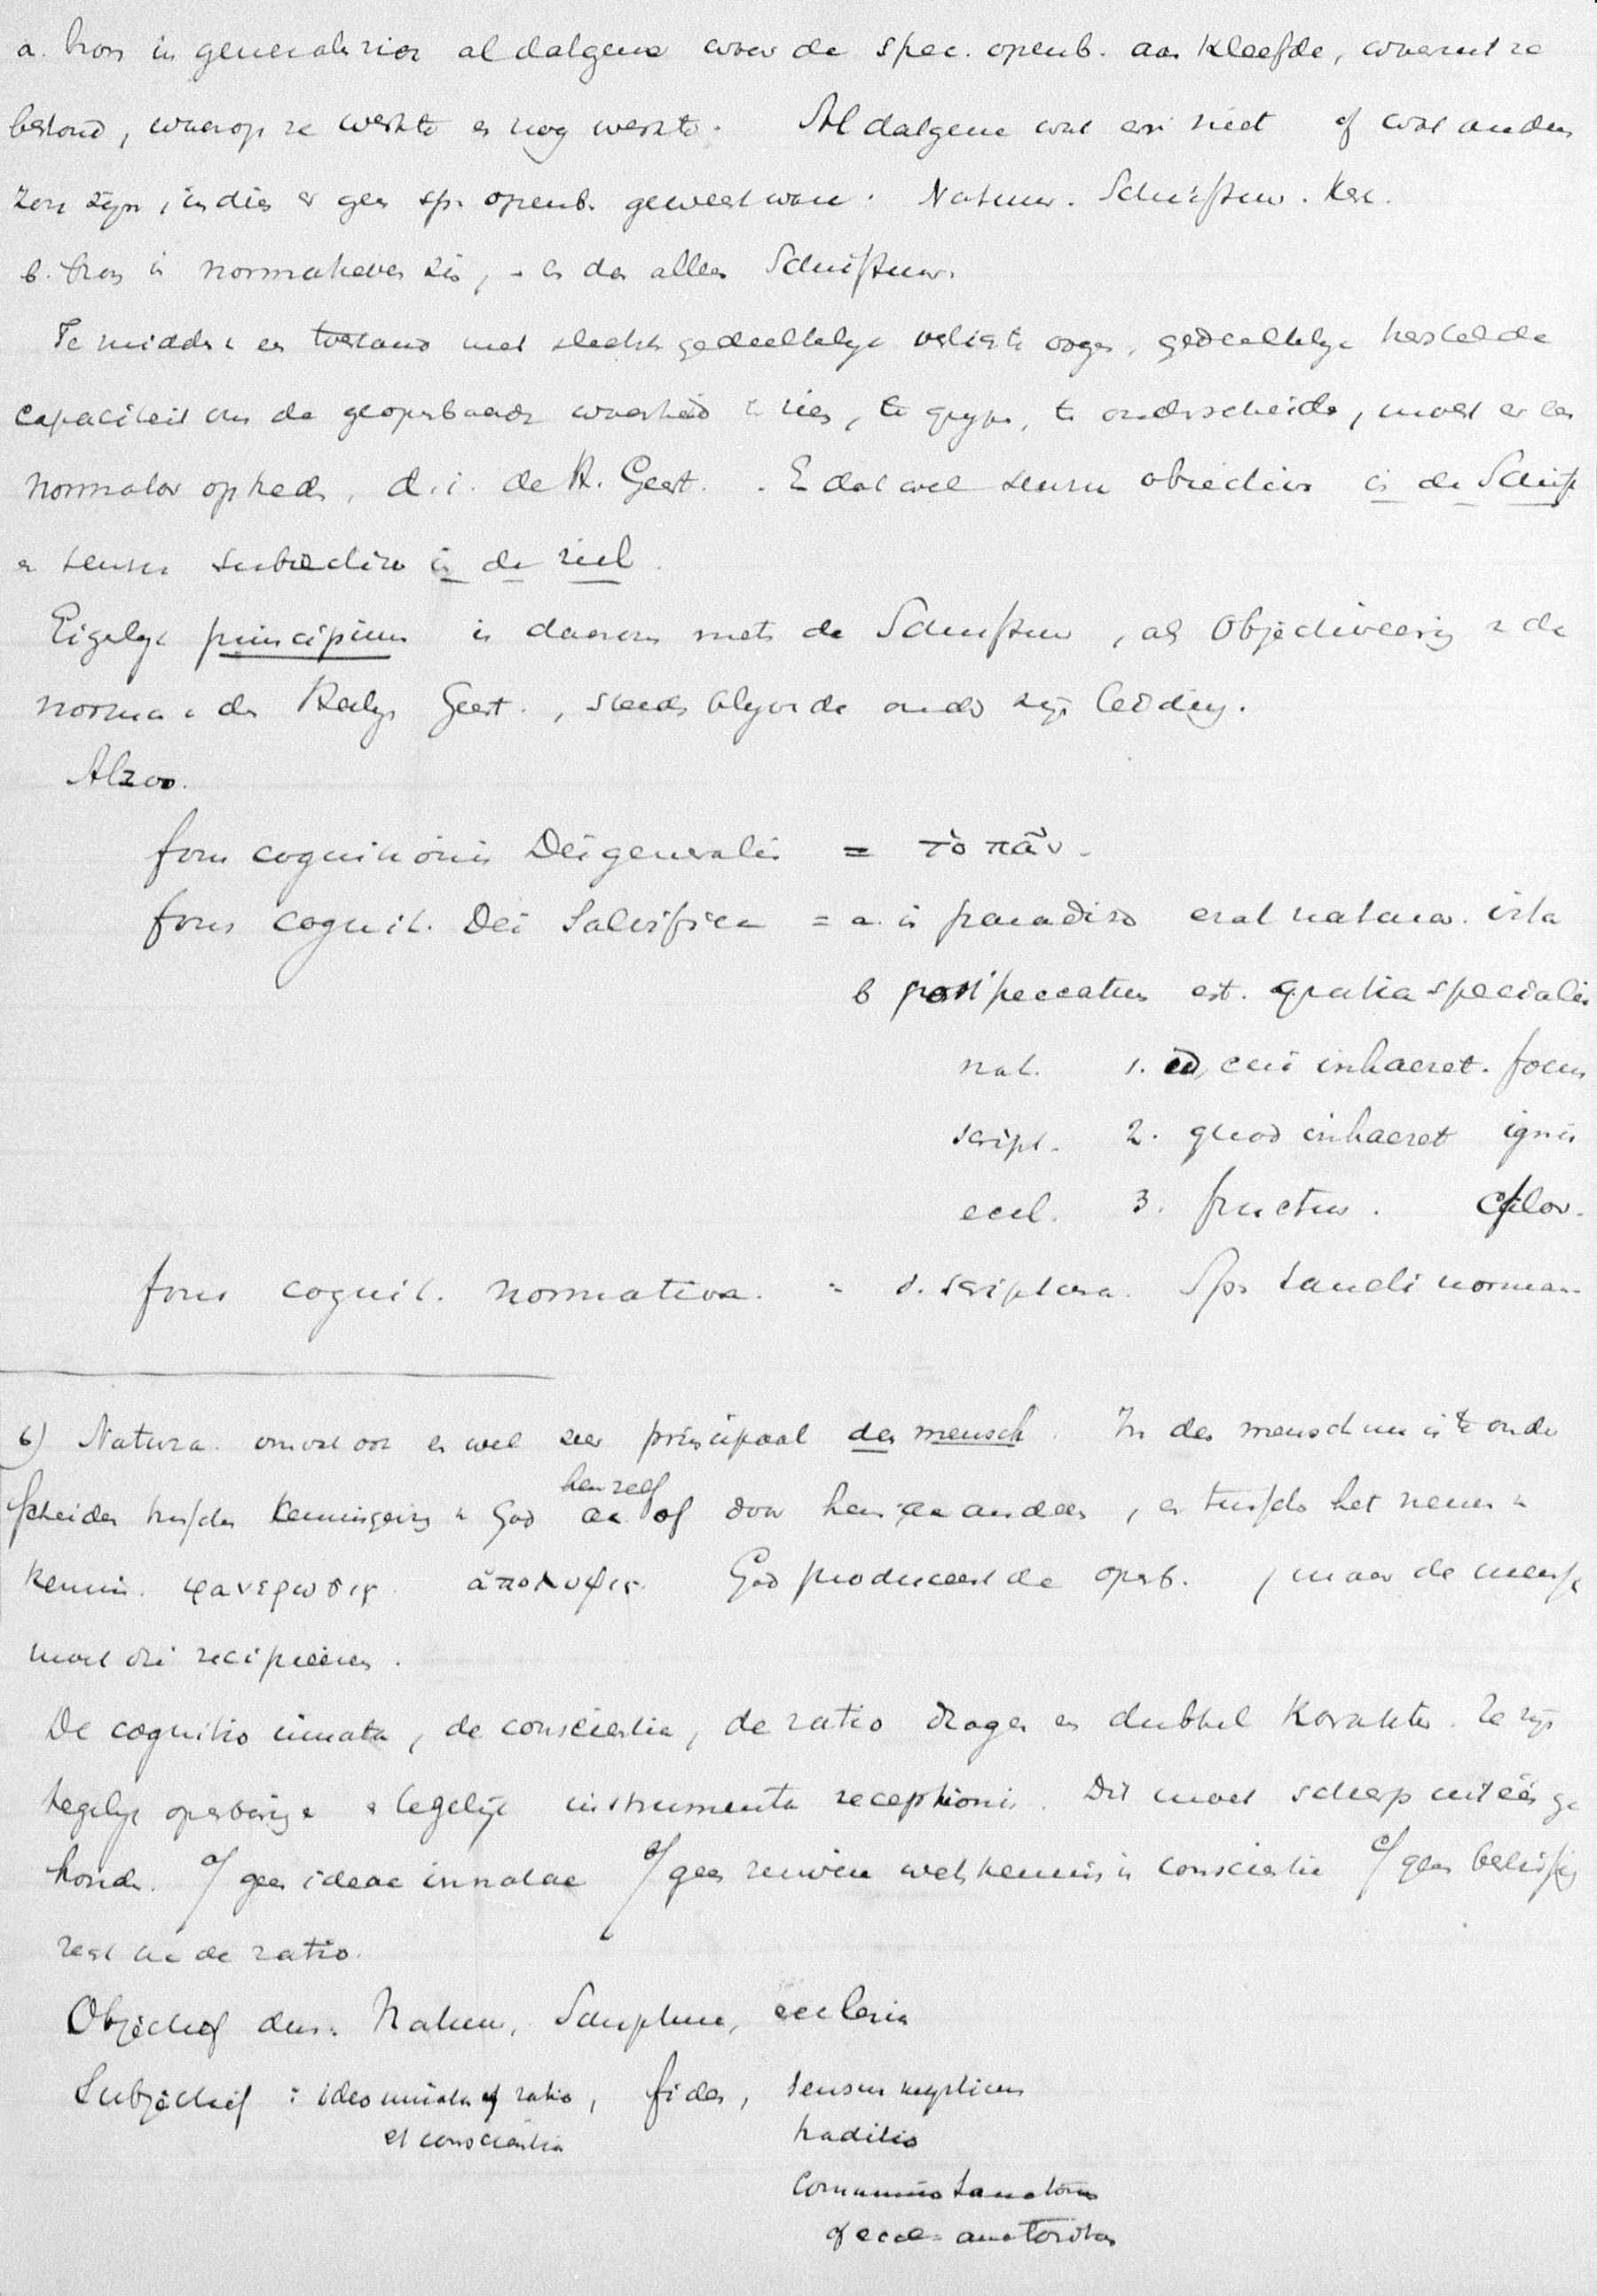 a. bron in generale zin al datgene waar de spec. openb. aan kleefde, waaruit ze
bestond, waarop ze werkte en nog werkte. Al datgene wat er niet of wat anders
zou zijn, indien er geen sp. openb. geweest ware. Natuur. Schriftuur. Kerk.
b. bron in normatieven zin, is dan alleen Schriftuur.
Te midden een toestand met slechts gedeeltelijk verlichte oogen, gedeeltelijk herstelde
capaciteit om de geopenbaarde waarheid te zien, te grijpen, te onderscheiden, moest er een
normator optreden, d.i. de H. Geest. En dat wel sensu obiectivo in de Schrift
en sensu subiectivo in de ziel.
Eigelijk principium is daarom niets de Schriftuur, als Objectiveering v de
norma v den Heilige Geest., steeds blijvende onder zijn leiding.
Alzoo.
fons cognitionis Dei generalis = τὸ πᾶν.
fons cognit. Dei Salvifica = a. in paradiso erat natura. ista
b post peccatum est. gratia specialis
nat. 1. id, cui inhaeret. focus
script. 2. quod inhaeret ignis
eccl. 3. fructus. Calor.
fons cognit. normativa. = s. scriptura. Sps Sancti norma
6) Natura. omvat ook en wel zeer principaal den mensch. In den mensch nu is te onder
scheiden tusschen kennisgeving v God aan hemzelf of door hem aan anderen, en tusschen het nemen v
kennis. φανερωσις. ἀποκυψις. God produceert de openb., maar de mensch
moet die recipieeren.
De cognitio innata, de conscientia, de ratio dragen een dubbel karakter. Ze zijn
tegelijk openbaring en tegelijk instrumenta receptionis. Dit moet scherp uiteen ge
houden. a/ geen ideae innatae b/ geen zuivere wetskennis in conscientia c/ geen beslissings
recht in de ratio.
Objectief dus: Natuur, Scriptura, ecclesia
Subjectief: idea innata of ratio, fides, sensus mysticus
et conscientia traditio
Communio Sanctorum
of eccl. auctoritas